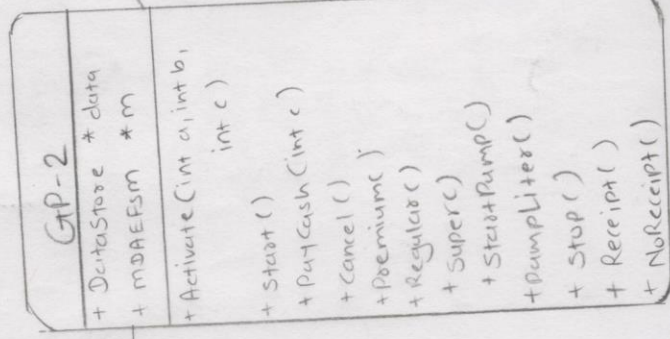 GP-2
+ DataStore * data
+ MDAEFSM * m
+ Activate (int a, int b,
int c)
+ Start ()
+ PayCash (int c)
+ Cancel ()
+ Premium ()
+ Regular ()
+ Super ()
+ StartPump ()
+ PumpLiter ()
+ Stop ()
+ Receipt ()
+ NoReceipt ()